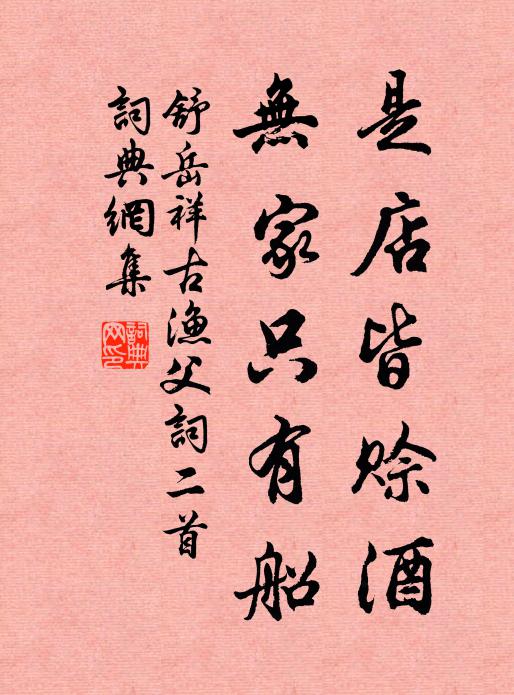 是店皆賒酒
無家只有船
舒岳祥古漁父詞二首
詞典網集
詞典網印